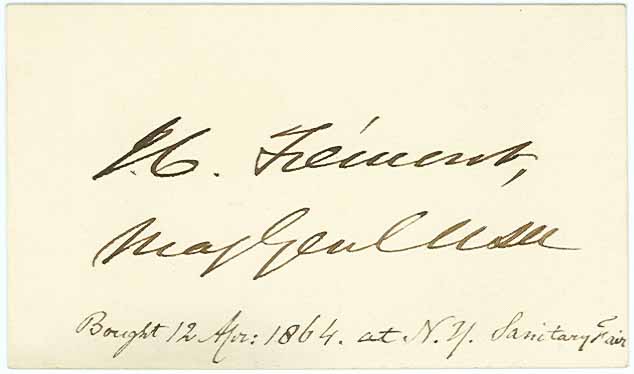 J.C. Frémont,
Maj Genl USA
Bought 12 Apr: 1864. at N.Y. Sanitary Fair